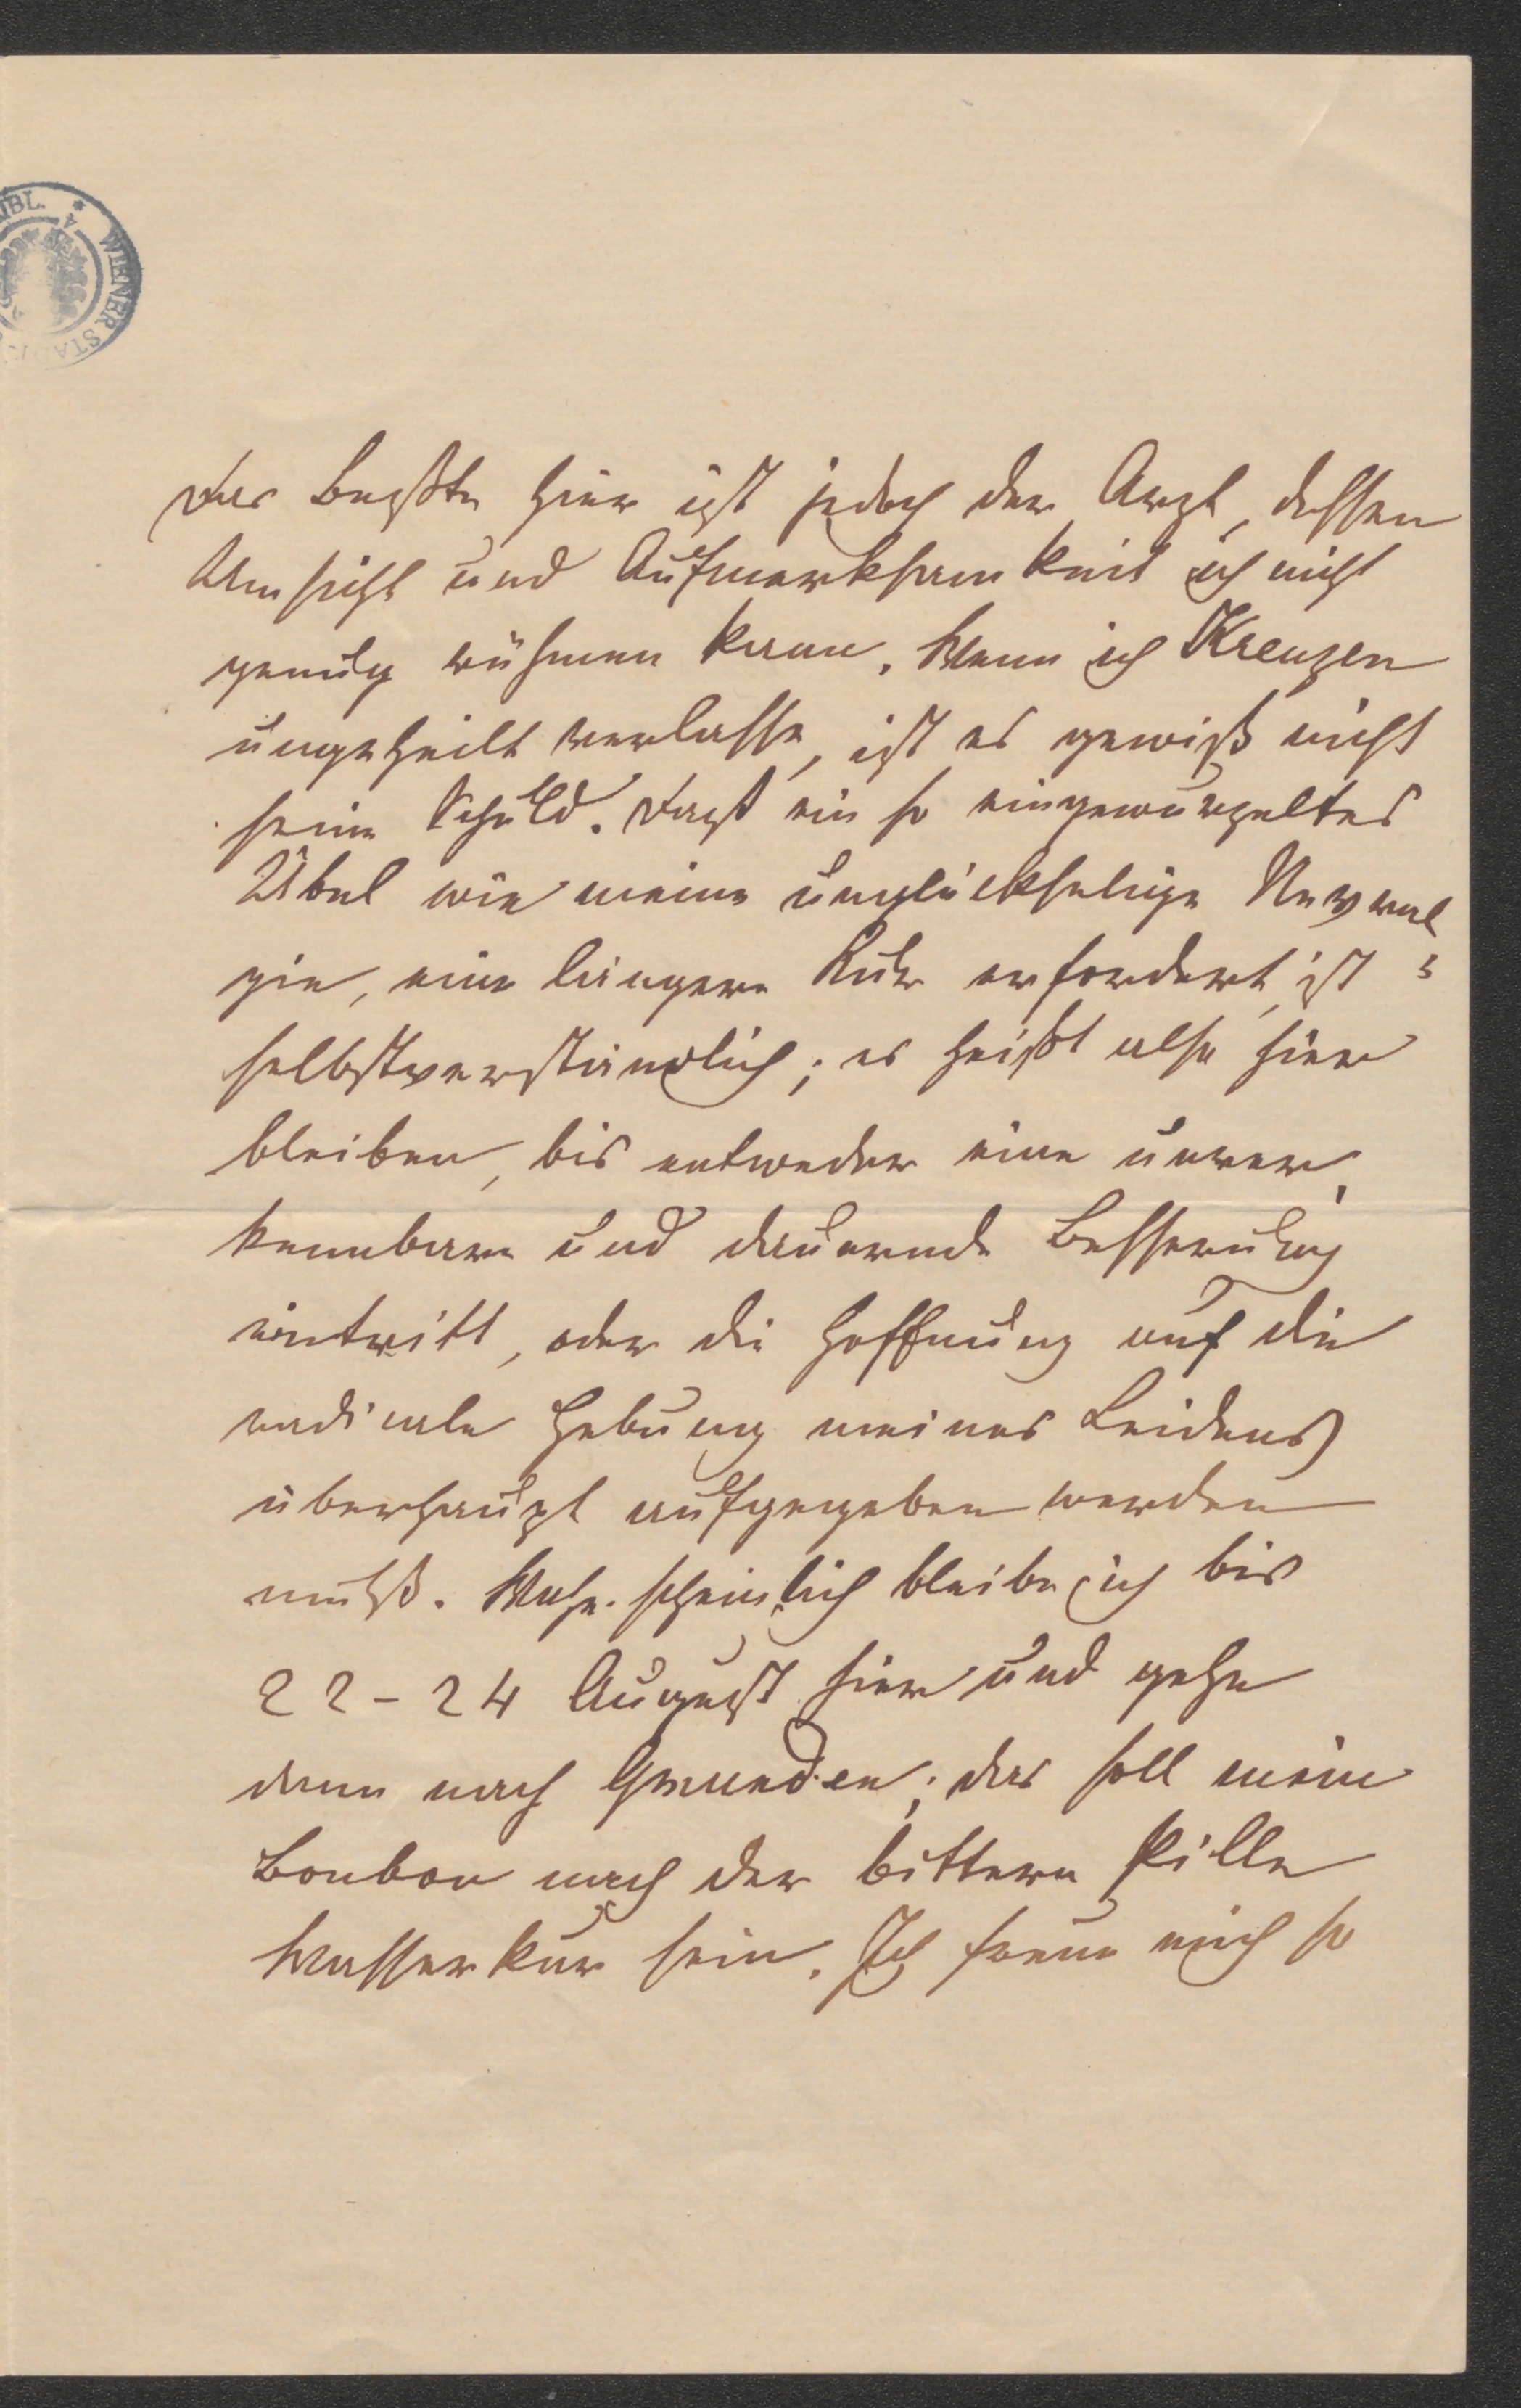 BIBL. * WIENER STADT
Das Beßte hier ist jedoch der Arzt, dessen
Umsicht und Aufmerksamkeit ich nicht
genug rühmen kann. Wenn ich Kreuzen
ungeheilt verlasse, ist es gewiß nicht
seine Schuld. Daß ein so eingewurzeltes
Übel wie meine unglückselige Neural
gie, eine längere Kur erfordert, ist
selbstverständlich; es heißt also hier
bleiben, bis entweder eine unver
kennbare und dauernde Besserung
eintritt, oder die Hoffnung auf die
radicale Hebung meines Leidens
überhaupt aufgegeben werden
muß. Wahrscheinlich bleibe ich bis
22-24 August hier und gehe
dann nach Gmunden; das soll mein
Bonbon nach der bittern Pille
Wasserkur sein. Ich freue mich so